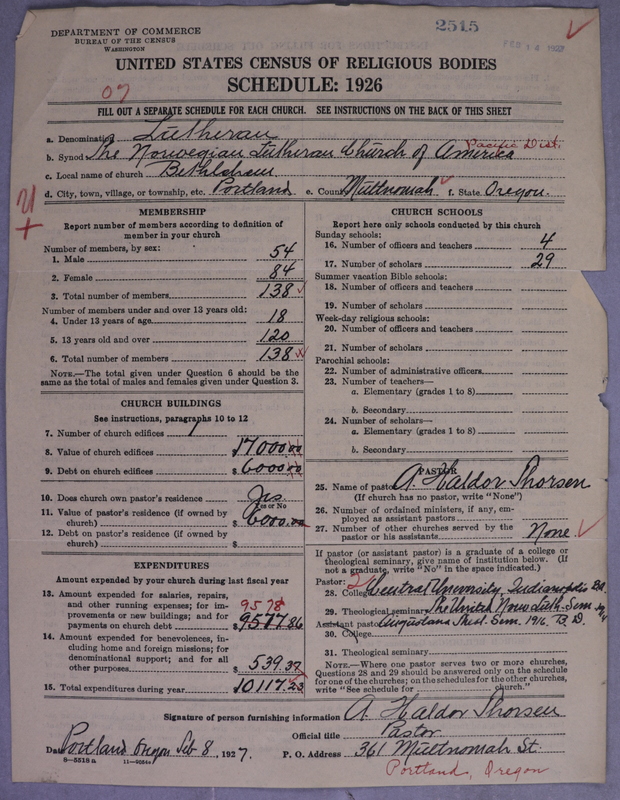 DEPARTMENT OF COMMERCE
BUREAU OF THE CENSUS
WASHINGTON
2515
FEB 14 1927
UNITED STATES CENSUS OF RELIGIOUS BODIES
SCHEDULE: 1926
FILL OUT A SEPARATE SCHEDULE FOR EACH CHURCH. SEE INSTRUCTIONS ON THE BACK OF THIS SHEET
a. Denomination Lutheran
Pacific Dist.
b. Synod The Norwegian Lutheran Church of America
c. Local name of church Bethlehem
d. City, town, village, or township, etc. Portland e. County Multnomah f. State Oregon.
MEMBERSHIP
Report number of members according to definition of
member in your church
Number of members, by sex:
1. Male 54
2. Female 84
3. Total number of members 138
Number of members under and over 13 years old:
4. Under 13 years of age 18
5. 13 years old and over 120
6. Total number of members 138
NOTE.—The total given under Question 6 should be the
same as the total of males and females given under Question 3.
CHURCH BUILDINGS
See instructions, paragraphs 10 to 12
7. Number of church edifices 1
8. Value of church edifices $17000.00
9. Debt on church edifices $6000.00
10. Does church own pastor's residence Yes.
Yes or No
11. Value of pastor's residence (if owned by
church) $6000.00
12. Debt on pastor's residence (if owned by
church) $
EXPENDITURES
Amount expended by your church during last fiscal year
13. Amount expended for salaries, repairs,
and other running expenses; for im-
provements or new buildings; and for
payments on church debt $9577.86
9578
14. Amount expended for benevolences, in-
cluding home and foreign missions; for
denominational support; and for all
other purposes $539.37
15. Total expenditures during year $10117.23
CHURCH SCHOOLS
Report here only schools conducted by this church
Sunday schools:
16. Number of officers and teachers 4
17. Number of scholars 29
Summer vacation Bible schools:
18. Number of officers and teachers
19. Number of scholars
Week-day religious schools:
20. Number of officers and teachers
21. Number of scholars
Parochial schools:
22. Number of administrative officers
23. Number of teachers—
a. Elementary (grades 1 to 8)
b. Secondary
24. Number of scholars—
a. Elementary (grades 1 to 8)
b. Secondary
PASTOR
25. Name of pastor A. Haldor Thorsen
(If church has no pastor, write "None")
26. Number of ordained ministers, if any, em-
ployed as assistant pastors
27. Number of other churches served by the
pastor or his assistants None.
If pastor (or assistant pastor) is a graduate of a college or
theological seminary, give name of institution below. (If
not a graduate, write "No" in the space indicated.)
Pastor:
28. College Central University, Indianapolis
29. Theological seminary The United Norw. Luth. Sem.
Assistant pastor: Augustana Theol. Sem. 1916, B.D.
30. College
31. Theological seminary
NOTE.—Where one pastor serves two or more churches,
Questions 28 and 29 should be answered only on the schedule
for one of the churches; on the schedules for the other churches,
write "See schedule for church."
Signature of person furnishing information A. Haldor Thorsen
Official title Pastor
Date Portland Oregon Feb 8, 1927. P. O. Address 361 Multnomah St.
8—5518a 11—9264a
Portland, Oregon